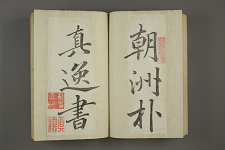 朝洲朴
真逸書